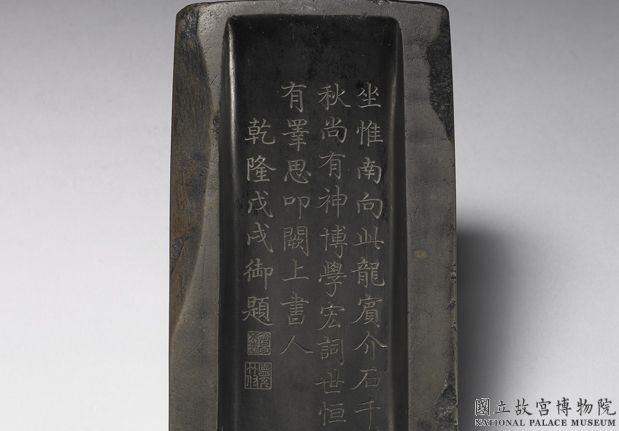 坐惟南向此龍賓介石千
秋尚有神博學宏詞世恒
有睪思叩闕上書人
乾隆戊戌御題
國立故宮博物院
NATIONAL PALACE MUSEUM